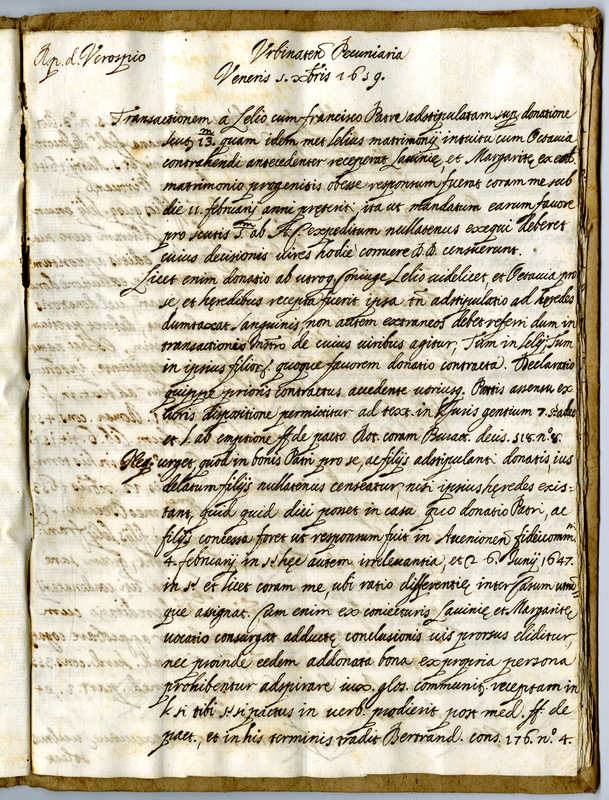 Rp. d. Verospio
Urbinaten Pecuniaria
Veneris 5. Xbris 1659.
Transactionem a Lelio cum francisco Patre adstipulatam sup. donatione
scut. 13.m quam idem met Lelius matrimonij intuitu cum Octavia
contrahendi antecedenter receperat Lavinię, et Margaritę ex eod.
matrimonio progenitis obesse responsum fuerat coram me sub
die 11. februarij anni preteriti, ita ut mandatum earum favore
pro scutis 3.m ab A. C. expeditum nullatenus exequi deberet
cuius decisionis vires hodie corruere DD. censuerunt.
Licet enim donatio ab utroq. Coniuge Lelio videlicet, et Octavia pro
se, et heredibus recepta fuerit ipsa tn adstipulatio ad heredes
dumtaxat sanguinis, non autem extraneos debet referri dum in
transactionis intro de cuius viribus agitur, Tum in Lelij, Tum
in ipsius filior. quoque favorem donatio contracta. Declaratio
quippe prioris contractus accedente utriusq. Partis assensu ex
iuris dispositione permittitur ad text. in l. iuris gentium 7. §. adeo
et l. ab emptione ff. de pacto Rot. coram Buratt. decis. 518. nº. 8.
Neq. urget, quod in bonis Patri pro se, ac filijs adstipulant. donatis, ius
delatum filijs nullatenus censeatur, nisi ipsius hęredes exis=
tant, quid quid dici posset in casu quo donatio Patri, ac
filijs concessa foret ut responsum fuit in Avenionen. fideicomm.
4. februarij in §. hęc autem irrelevantia, et 26. Junij 1647.
in §. et licet coram me, ubi ratio differentię inter Casum utrum=
que assignat. Cum enim ex coniecturis Lavinię et Margaritę
vocatio consurgat adductę conclusionis vis prorsus eliditur,
nec proinde eedem addonata bona ex propria persona
prohibentur adspirare iux. glos. communit. receptam in
l. si tibi §. si pactus in verb. prodierit post med. ff. de
pact., et in his terminis tradit Bertrand. cons. 176. nº. 4.